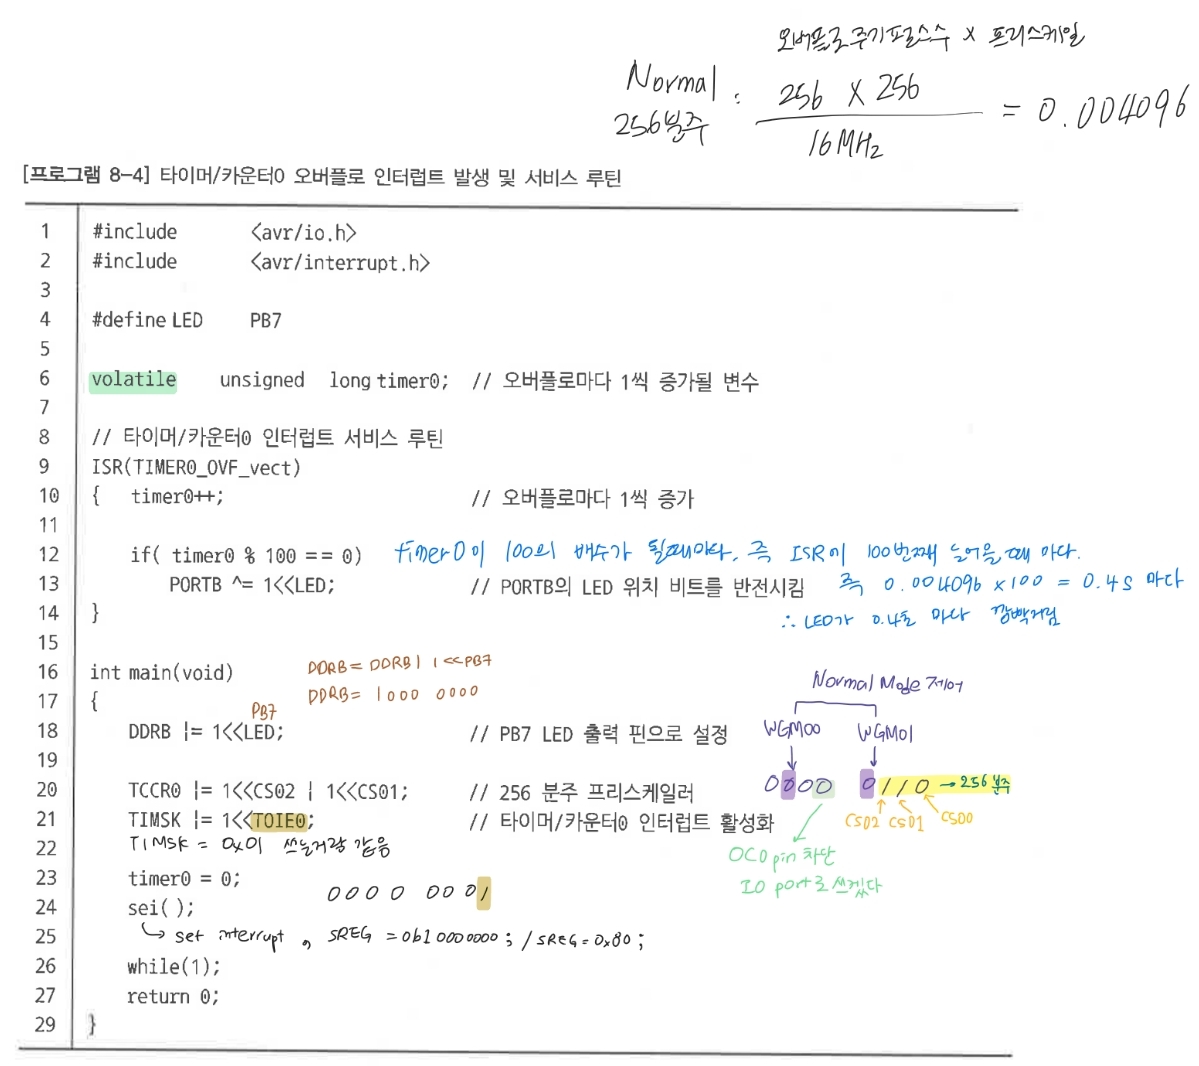 오버플로주기펄스수 x 프리스케일
Normal 256분주 : 256 X 256 / 16MHz = 0.004096
[프로그램 8-4] 타이머/카운터0 오버플로 인터럽트 발생 및 서비스 루틴
1 #include <avr/io.h>
2 #include <avr/interrupt.h>
3
4 #define LED PB7
5
6 volatile unsigned long timer0; // 오버플로마다 1씩 증가될 변수
7
8 // 타이머/카운터0 인터럽트 서비스 루틴
9 ISR(TIMER0_OVF_vect)
10 { timer0++; // 오버플로마다 1씩 증가
11
12 if( timer0 % 100 == 0) timer0이 100의 배수가 될때마다. 즉 ISR이 100번째 들어올 때 마다.
13 PORTB ^= 1<<LED; // PORTB의 LED 위치 비트를 반전시킴 즉 0.004096 x 100 = 0.4s 마다
14 }
∴ LED가 0.4초 마다 깜빡거림
15
16 int main(void) DDRB = DDRB | 1<<PB7
17 { DDRB = 1000 0000
PB7
18 DDRB |= 1<<LED; // PB7 LED 출력 핀으로 설정
Normal Mode 제어
WGM00 WGM01
19
20 TCCR0 |= 1<<CS02 | 1<<CS01; // 256 분주 프리스케일러 0000 0110 → 256 분주
21 TIMSK |= 1<<TOIE0; // 타이머/카운터0 인터럽트 활성화
CS02 CS01 CS00
22 TIMSK = 0x01 쓰는거랑 같음
OC0 pin 차단
IO port로 쓰겠다
23 timer0 = 0;
0000 0001
24 sei( );
25 ↳ set interrupt, SREG = 0b10000000; / SREG = 0x80;
26 while(1);
27 return 0;
29 }